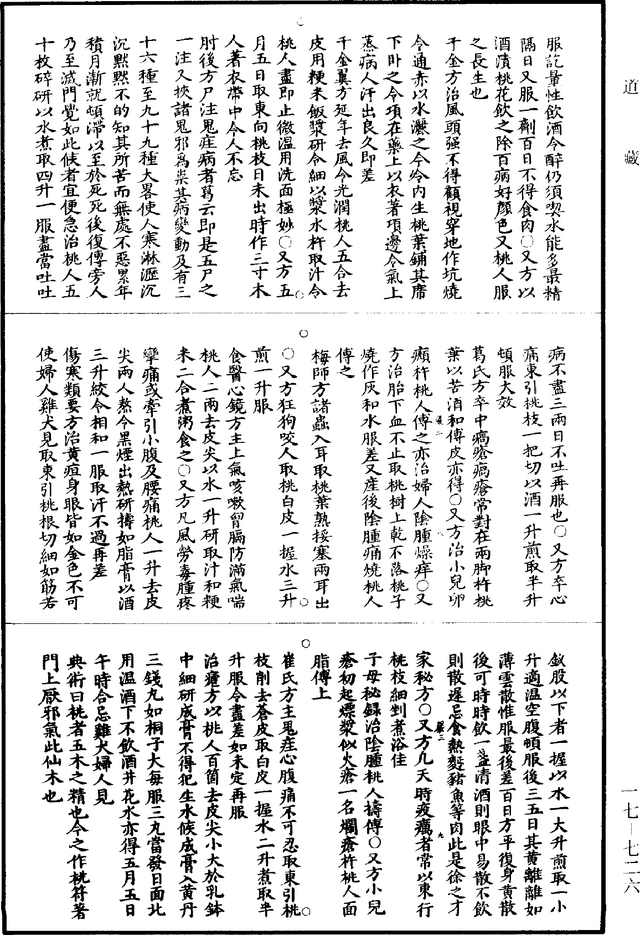 道藏
服訖量性飲酒令醉仍須喫水能多最精
隔日又服一劑百日不得食肉○又方以
酒漬桃花飲之除百病好顏色又桃人服
之長生也
千金方治風頭強不得顧視穿地作坑燒
令通赤以水灑之令冷內生桃葉鋪其席
下臥之令項在藥上以衣著項邊令氣上
蒸病人汗出良久即差
千金翼方延年去風令光潤桃人五合去
皮用粳米飯漿研令細以漿水杵取汁令
桃人盡即止微溫用洗面極妙○又方五
月五日取東向桃枝日未出時作三寸木
人著衣帶中令人不忘
肘後方尸注鬼疰病者葛云即是五尸之
一注又挾諸鬼邪為祟其病變動及有三
十六種至九十九種大畧使人寒淋瀝沉
沉默默不的知其所苦而無處不惡累年
積月漸就頓滯以至於死死後復傳旁人
乃至滅門覺如此候者宜便急治桃人五
十枚碎研以水煮取四升一服盡當吐吐
病不盡三兩日不吐再服也○又方卒心
痛東引桃枝一把切以酒一升煎取半升
頓服大效
葛氏方卒中瘑瘡瘑瘡常對在兩脚杵桃
葉以苦酒和傅皮亦得○又方治小兒卵
㿗杵桃人傅之亦治婦人陰腫燥痒○又
方治胎下血不止取桃樹上乾不落桃子
燒作灰和水服差又產後陰腫痛燒桃人
傅之
梅師方諸蟲入耳取桃葉熟挼塞兩耳出
○又方狂狗咬人取桃白皮一握水三升
煎一升服
食醫心鏡方主上氣咳嗽胷膈防滿氣喘
桃人二兩去皮尖以水一升研取汁和粳
米二合煮粥食之○又方凡風勞毒腫疼
攣痛或牽引小腹及腰痛桃人一升去皮
尖兩人熬令黑煙出熱研擣如脂膏以酒
三升絞令相和一服取汗不過再差
傷寒類要方治黃疸身眼皆如金色不可
使婦人雞犬見取東引桃根切細如筯若
釵股以下者一握以水一大升煎取一小
升適溫空腹頓服後三五日其黃離離如
薄雲散惟眼最後差百日方平復身黃散
後可時時飲一盞清酒則眼中易散不飲
則散遲忌食熱麪豬魚等肉此是徐之才
家秘方○又方凡天時疫癘者常以東行
桃枝細剉煮浴佳
子母秘錄治陰腫桃人擣傅○又方小兒
瘡初起熛漿似火瘡一名爛瘡杵桃人面
脂傅上
崔氏方主鬼疰心腹痛不可忍取東引桃
枝削去蒼皮取白皮一握水二升煮取半
升服令盡差如未定再服
治瘧方以桃人百箇去皮尖小大於乳鉢
中細研成膏不得犯生水候成膏入黃丹
三錢丸如桐子大每服三丸當發日面北
用溫酒下不飲酒井花水亦得五月五日
午時合忌雞犬婦人見
典術曰桃者五木之精也今之作桃符著
門上厭邪氣此仙木也
一七—七二六